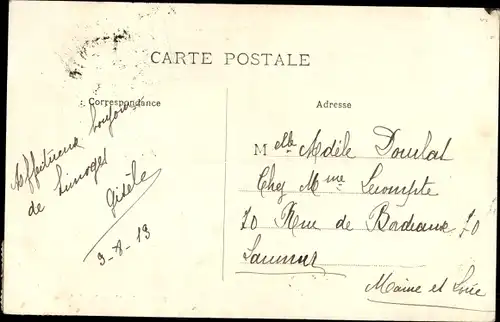 CARTE POSTALE
Correspondance
Adresse
Affectueux bonjour
de Limoges
Gisèle
3-8-13
Melle Adèle Doulat
Chez Mme Lecompte
70 Rue de Bordeaux 70
Saumur
Maine et Loire